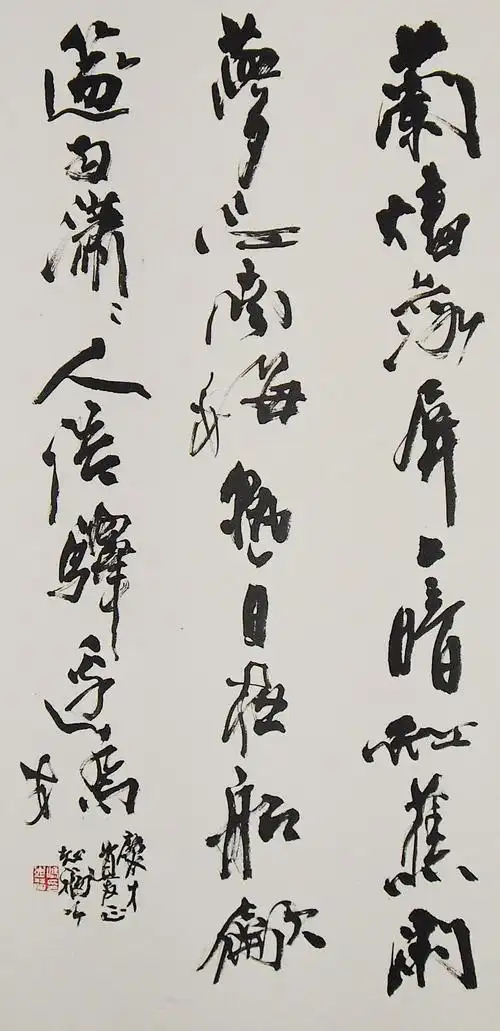 蘭燼落屏上暗紅蕉閑
夢江南梅熟日夜船龡
篴雨瀟〻人語驛邊橋